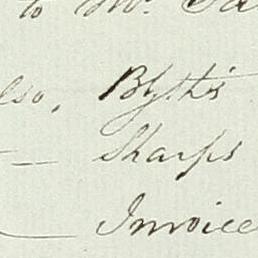 to Mr. 
lso, Blyth's
— Sharps
— Invoice